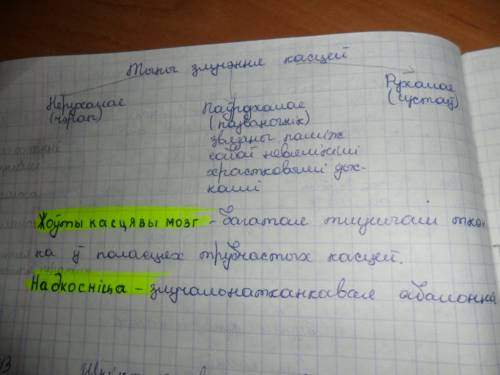 Тыпы злучэння касцей
Нерухомае
(чэрап)
Паўрухомае
(пазваночнік)
звязаны паміж
сабой невялікімі
храстковымі
Рухомае
(сустаў)
Жоўты касцявы мозг - багатае тлушчам ткан
ка ў поласцях трубчастых касцей.
Надкосніца - злучальнатканкавая абалонка